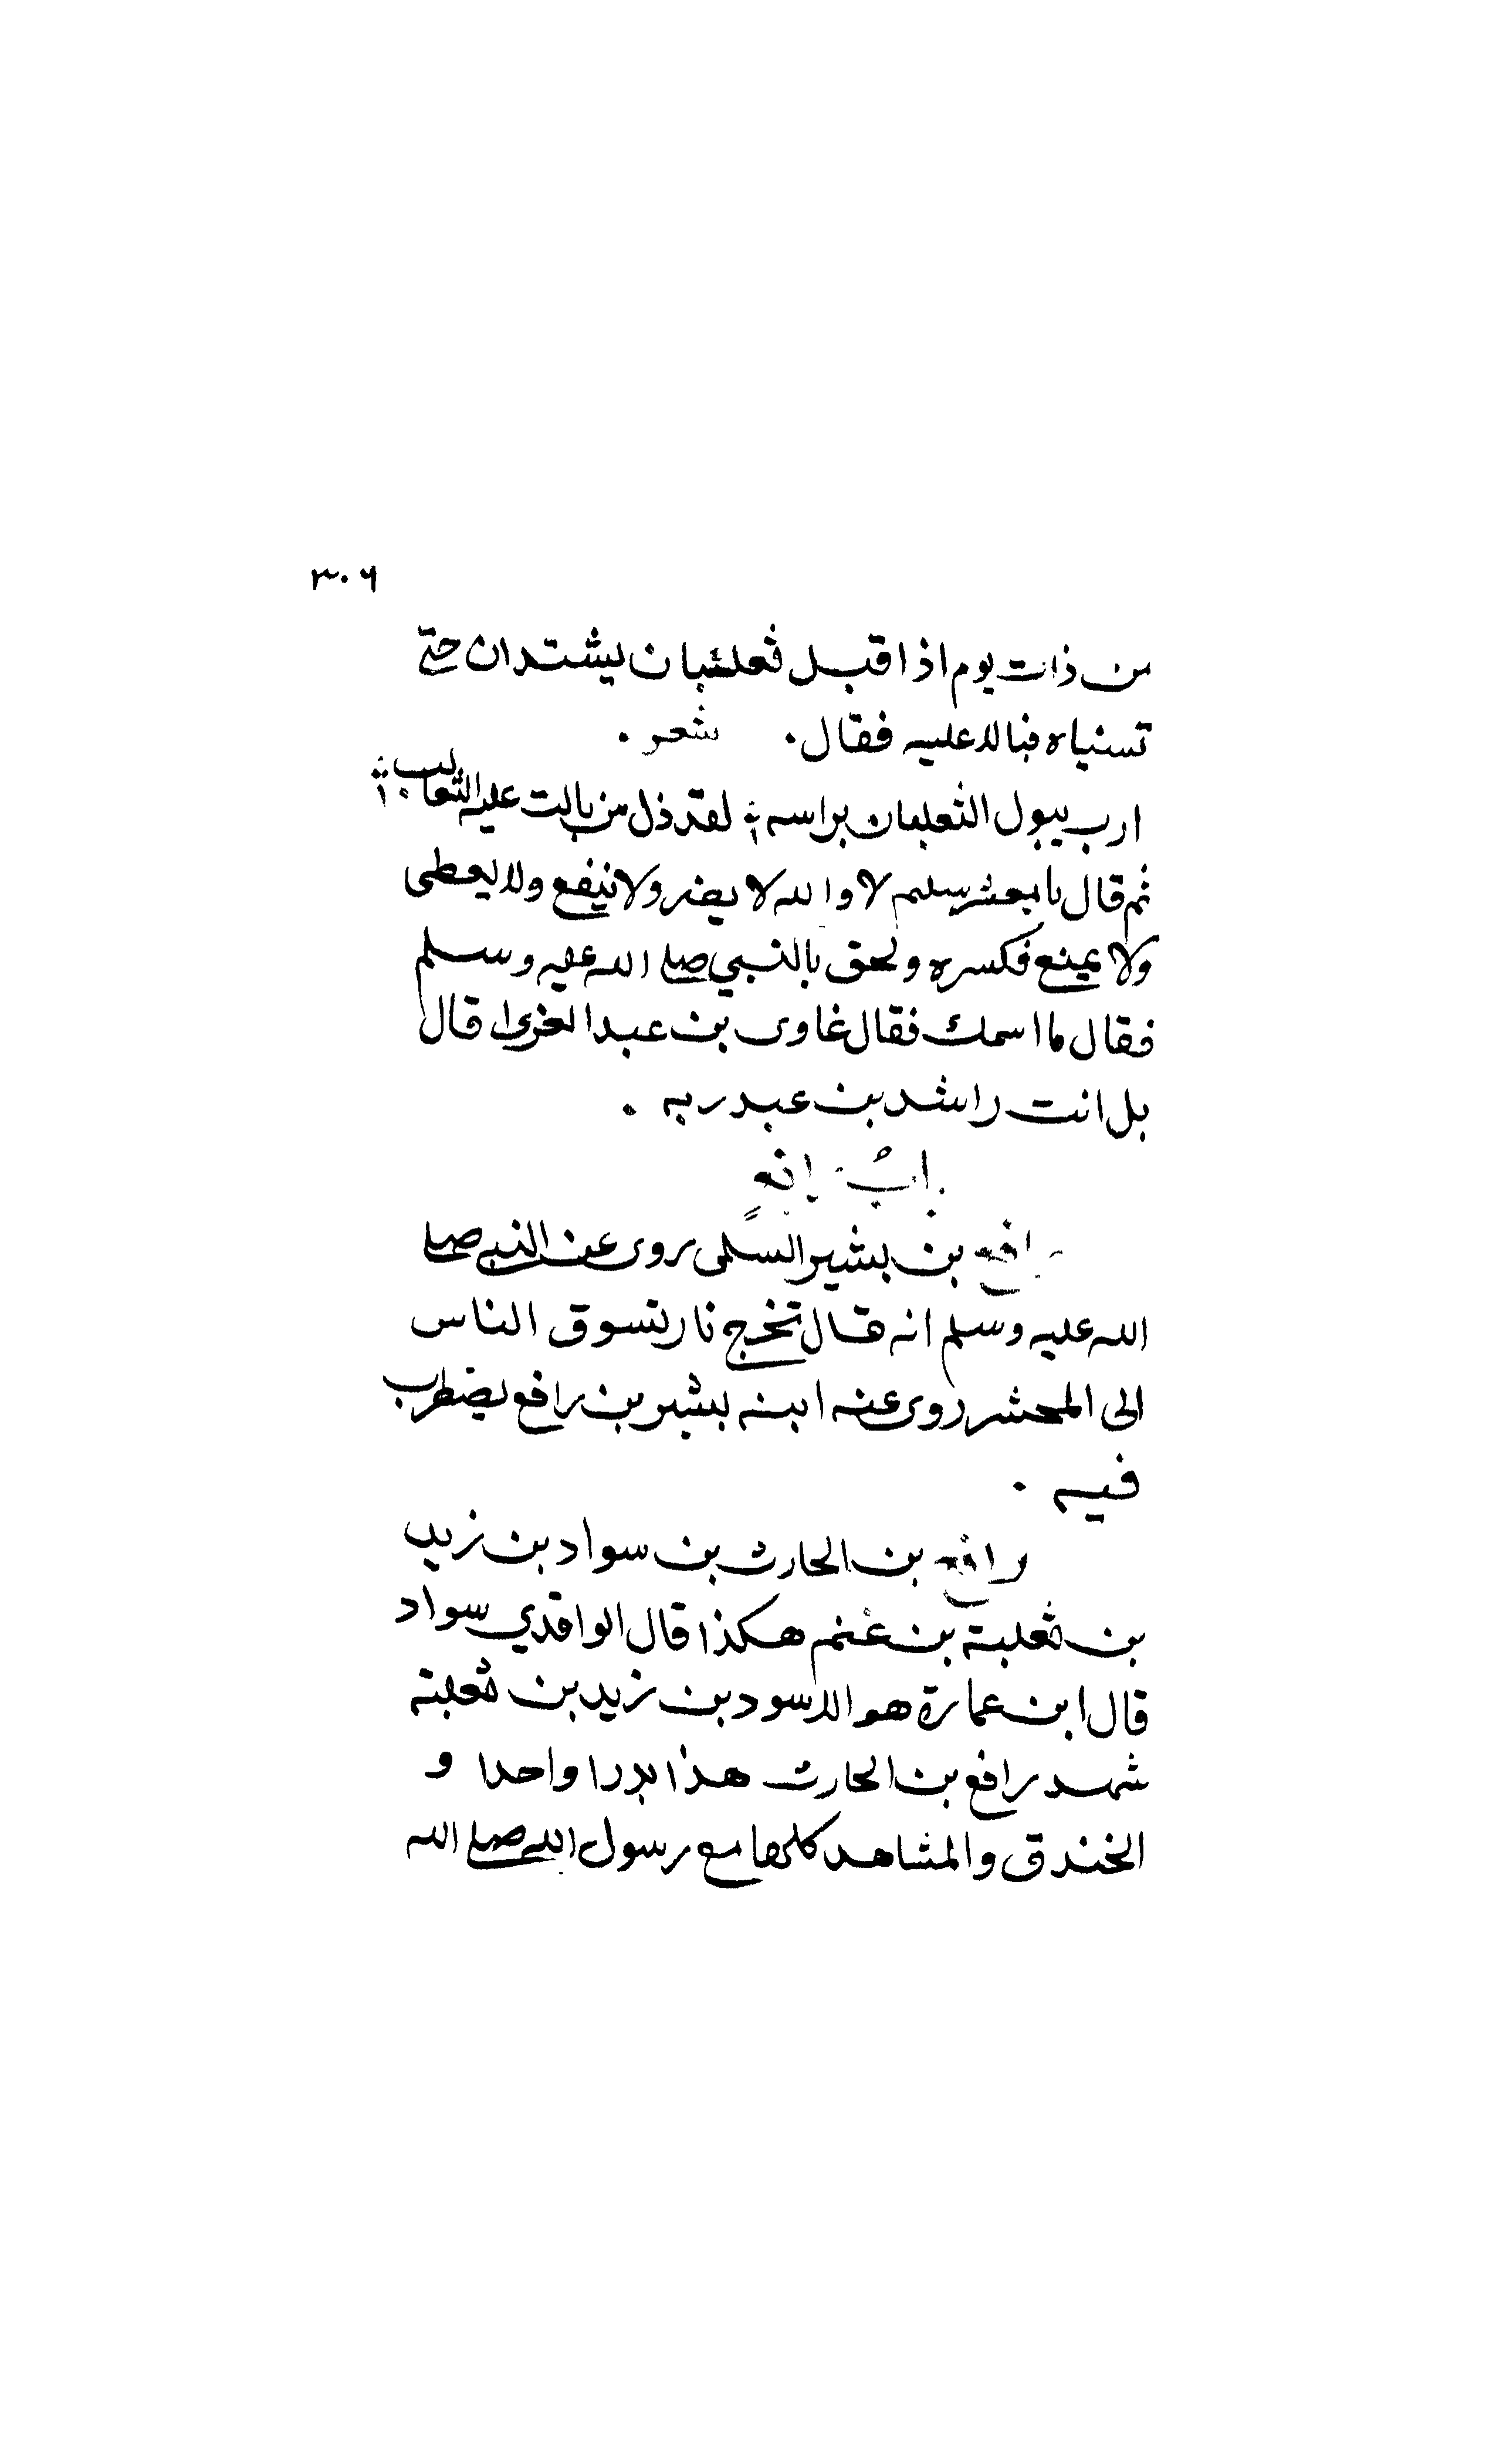 ٣٠٦
من ذات يوم اذا قبل ثعلبان يشتدان حتى
تسنياه فبالا عليه فقال. شعر.
ارب يبول الثعلبان براسه لقد ذل من بالت عليه الثعالب
ثم قال يا معشر سليم لا والله لا يضر ولا ينفع ولا يعطى
ولا يمنع فكسره ولحق بالنبي صلى الله عليه وسلم
فقال ما اسمك فقال غاوى بن عبد العزى قال
بل انت راشد بن عبد ربه .
باب رافع
رافع بن بشير السلمى روى عن النبي صلى
الله عليه وسلم انه قال تخرج نار تسوق الناس
الى المحشر روى عنه ابنه بشير بن رافع يضطرب
فيه .
رافع بن الحارث بن سواد بن زيد
بن ثعلبة بن غنم هكذا قال الواقدي سواد
قال ابن عمارة هو الاسود بن زيد بن ثعلبة
شهد رافع بن الحارث هذا بدرا واحدا و
الخندق والمشاهد كلها مع رسول الله صلى الله